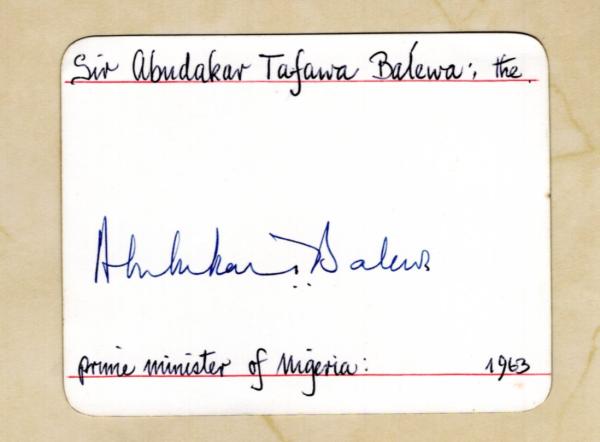 Sir Abudakar Tafawa Baléwa:, the
Abubukar Balewa
prime minister of Nigeria: 1963